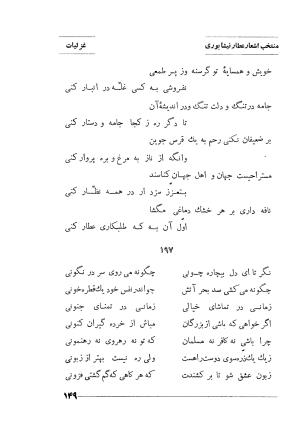 منتخب اشعار عطار نیشابوری
غزلیات
خویش و همسایهٔ تو گرسنه وز پر طمعی
نفروشی به کسی غلّه در انبار کنی
جامه در تنگ و دلت تنگ و در اندیشهٔ آن
تا دگر ره ز کجا جامه و دستار کنی
بر ضعیفان نکنی رحم به یك قرص جوین
وانگه از ناز به مرغ و بره پروار کنی
مستراحیست جهان و اهل جهان کناسند
بتعزّز مزد ار در همه نظّار کنی
نافه داری بر هر خشك دماغی مگشا
اول آن به که طلبکاری عطار کنی
۱۹۷
نگر تا ای دل بیچاره چونی    چگونه می روی سر در نگونی
چگونه می کشی سد بحر آتش    چو اندر نفس خود یك قطره خونی
زمانی در تماشای خیالی    زمانی در تمنای جنونی
اگر خواهی که باشی از بزرگان    مباش از خرده گیران کنونی
چرا باشی نه کافر نه مسلمان    که تو نه رهروی نه رهنمونی
زیك یك ذرّه سوی دوست راهست    ولی ره نیست بهتر از زبونی
زبون عشق شو تا بر کشندت    که هر کاهی که گم گشتی فزونی
۱۴۹